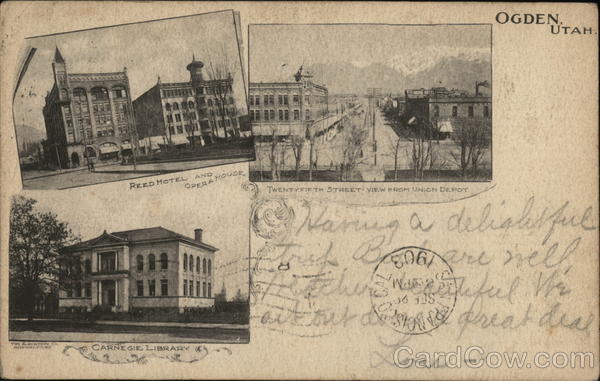 OGDEN,
UTAH.
REED HOTEL AND
OPERA HOUSE
TWENTYFIFTH STREET - VIEW FROM UNION DEPOT
Having a delightful
trip Both are well
Weather beautiful We
are out a great deal
1903
SEP
CAL
CARNEGIE LIBRARY
CardCow.com